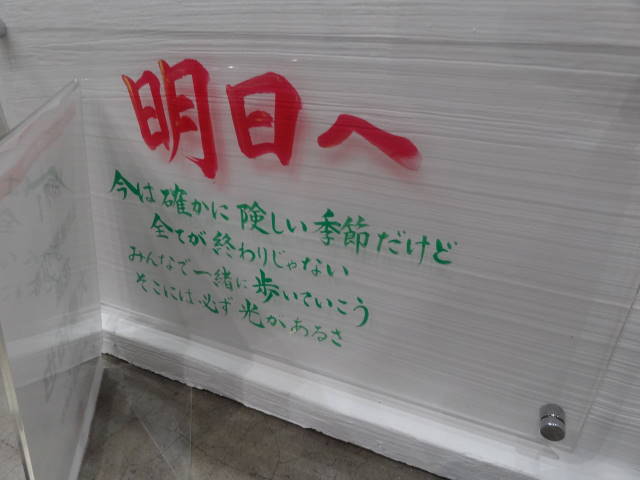 明日へ
今は確かに険しい季節だけど
全てが終わりじゃない
みんなで一緒に歩いていこう
そこには必ず光があるさ